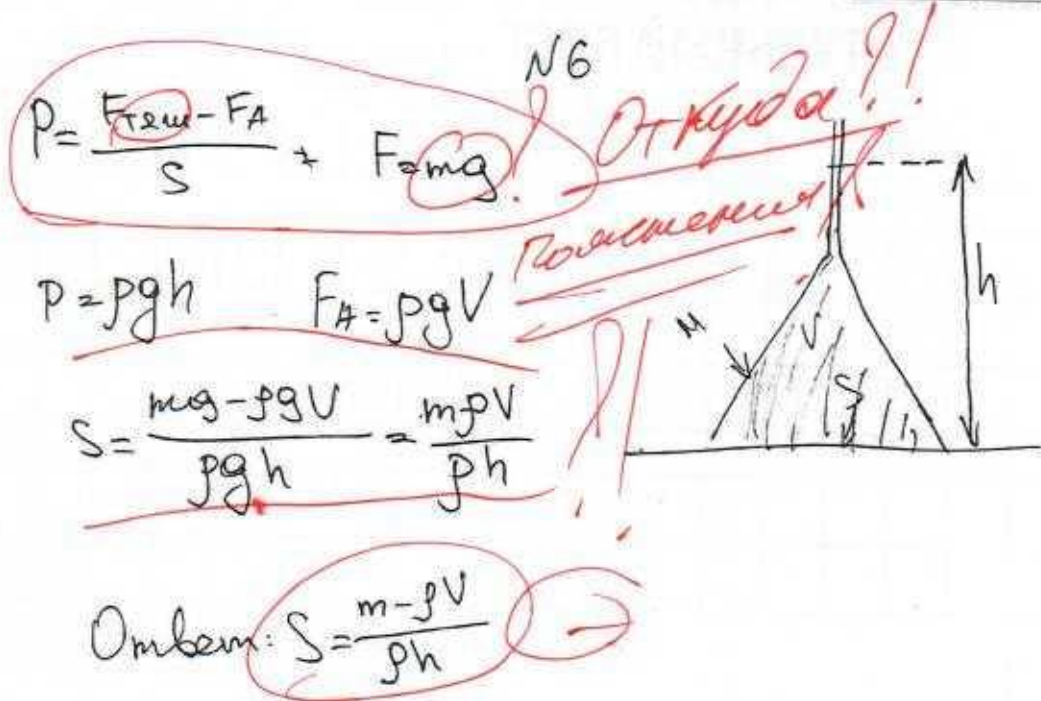 N6
P = (Fтяж - FA) / S + F = mg ! Откуда ?!
Пояснения !
P = ρgh FA = ρgV
S = (mg - ρgV) / (ρgh) = (mρV) / (ρh) ?!
Ответ: S = (m - ρV) / (ρh) −
M
V
S
h